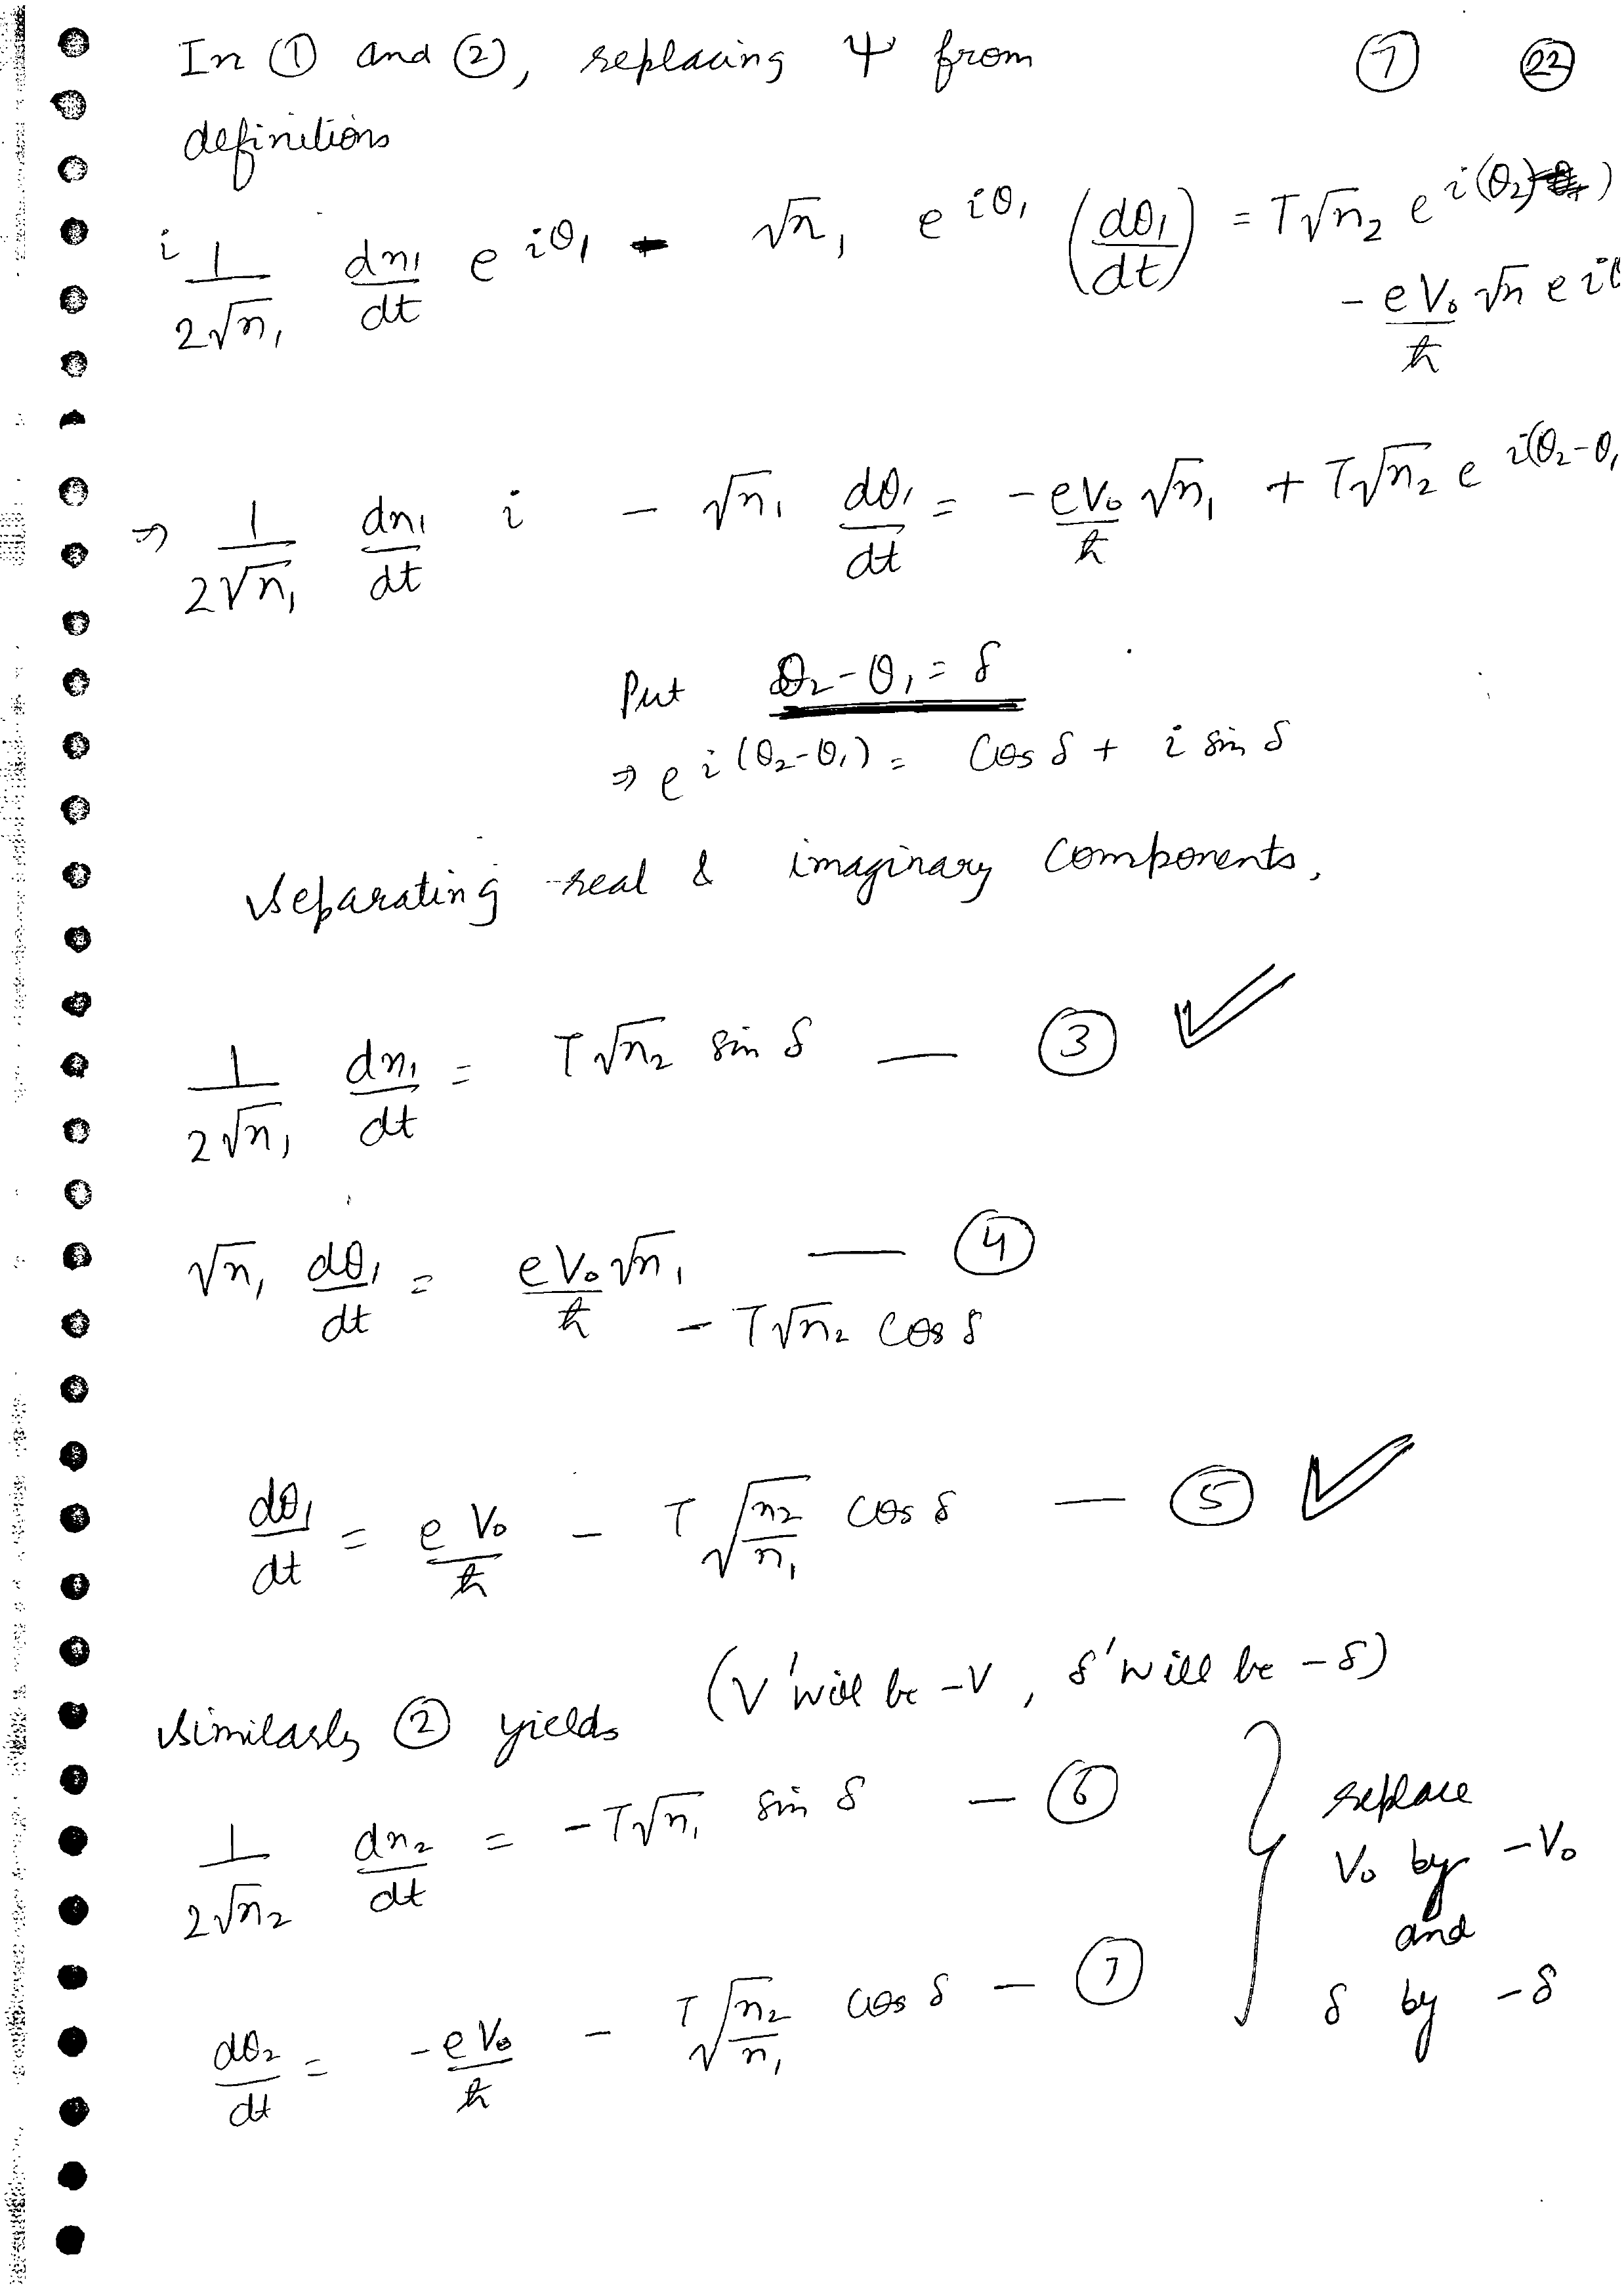 In ① and ②, replacing ψ from ⑦ ㉒
definitions
i 1/(2√n₁) dn₁/dt e^{iθ₁} - √n₁ e^{iθ₁} (dθ₁/dt) = T√n₂ e^{i(θ₂)}
- eV₀/ħ √n e^{i
⇒ 1/(2√n₁) dn₁/dt i - √n₁ dθ₁/dt = - eV₀/ħ √n₁ + T√n₂ e^{i(θ₂-θ₁
Put θ₂-θ₁ = δ
⇒ e^{i(θ₂-θ₁)} = Cos δ + i sin δ
Separating real & imaginary components,
1/(2√n₁) dn₁/dt = T√n₂ sin δ — ③ ✓
√n₁ dθ₁/dt = eV₀/ħ √n₁ — ④
- T√n₂ cos δ
dθ₁/dt = eV₀/ħ - T√(n₂/n₁) cos δ — ⑤ ✓
(V' will be -V, δ' will be -δ)
Similarly ② yields
1/(2√n₂) dn₂/dt = -T√n₁ sin δ — ⑥
dθ₂/dt = -eV₀/ħ - T√(n₂/n₁) cos δ — ⑦
replace
V₀ by -V₀
and
δ by -δ